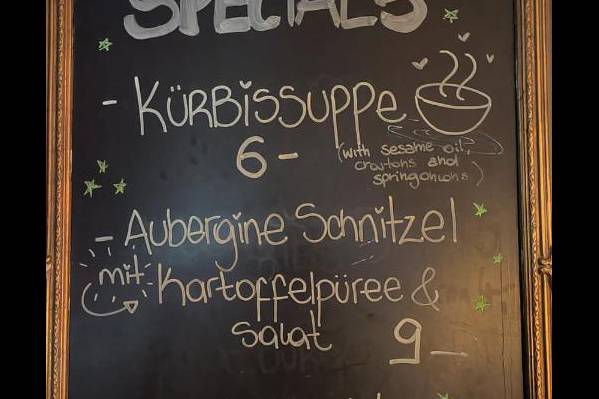 SPECIALS
- KÜRBISSUPPE
6-
(with sesame oil,
croutons and
springonions)
- Aubergine Schnitzel
mit Kartoffelpüree &
Salat 9-